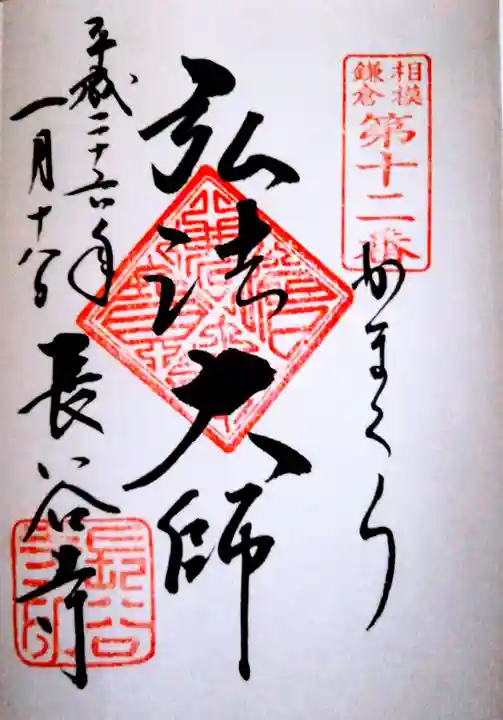 相模
鎌倉
第十二番
かまくら
弘法大師
平成二十六年
一月十八日
長谷寺